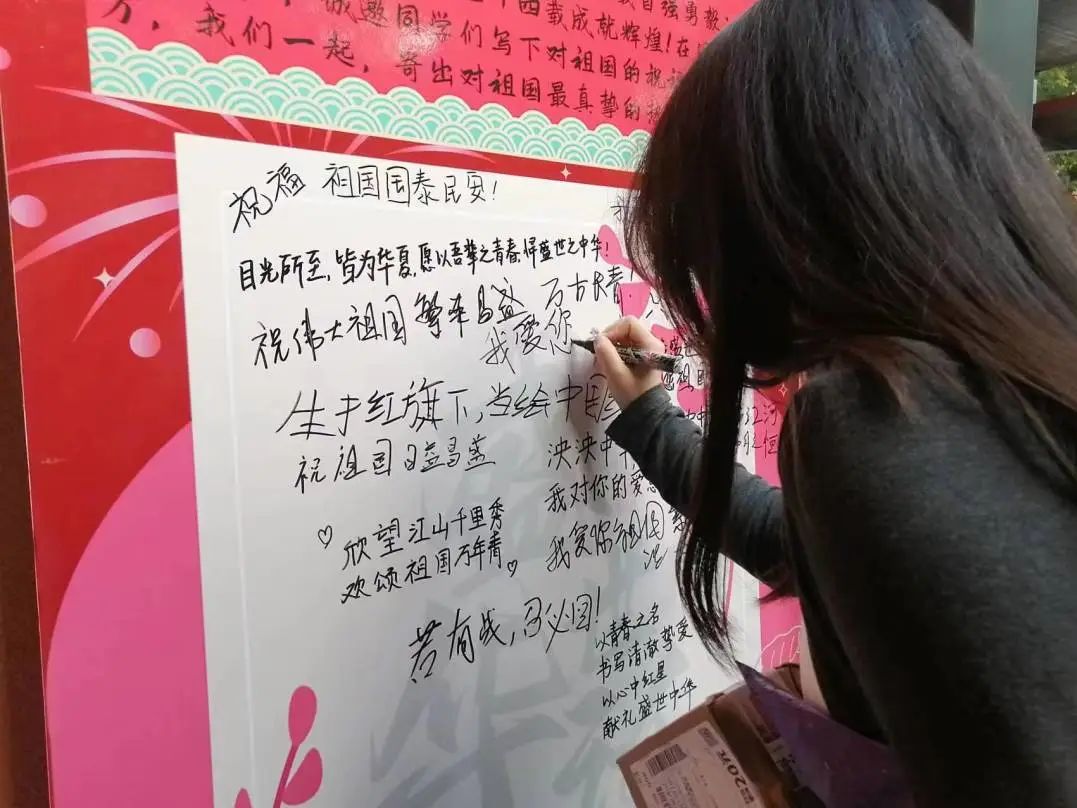 四载成就辉煌！在
方，诚邀同学们写下对祖国的祝
我们一起，寄出对祖国最真挚的
祝福 祖国国泰民安！
目光所至，皆为华夏，愿以吾辈之青春，捍盛世之中华！
祝伟大祖国繁荣昌盛 万古长青！
我爱你
生于红旗下，当绘中国
祝祖国日益昌盛
泱泱中
我对你的爱
欣望江山千里秀
欢颂祖国万年青
我爱你祖国
若有战，召必回！
以青春之名
书写清澈挚爱
以心中红星
献礼盛世中华
20元